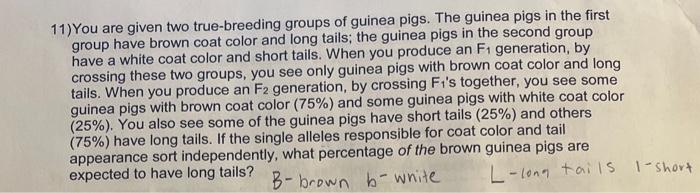 11)You are given two true-breeding groups of guinea pigs. The guinea pigs in the first
group have brown coat color and long tails; the guinea pigs in the second group
have a white coat color and short tails. When you produce an F₁ generation, by
crossing these two groups, you see only guinea pigs with brown coat color and long
tails. When you produce an F₂ generation, by crossing F₁'s together, you see some
guinea pigs with brown coat color (75%) and some guinea pigs with white coat color
(25%). You also see some of the guinea pigs have short tails (25%) and others
(75%) have long tails. If the single alleles responsible for coat color and tail
appearance sort independently, what percentage of the brown guinea pigs are
expected to have long tails? B-brown b-white L-long tails l-short